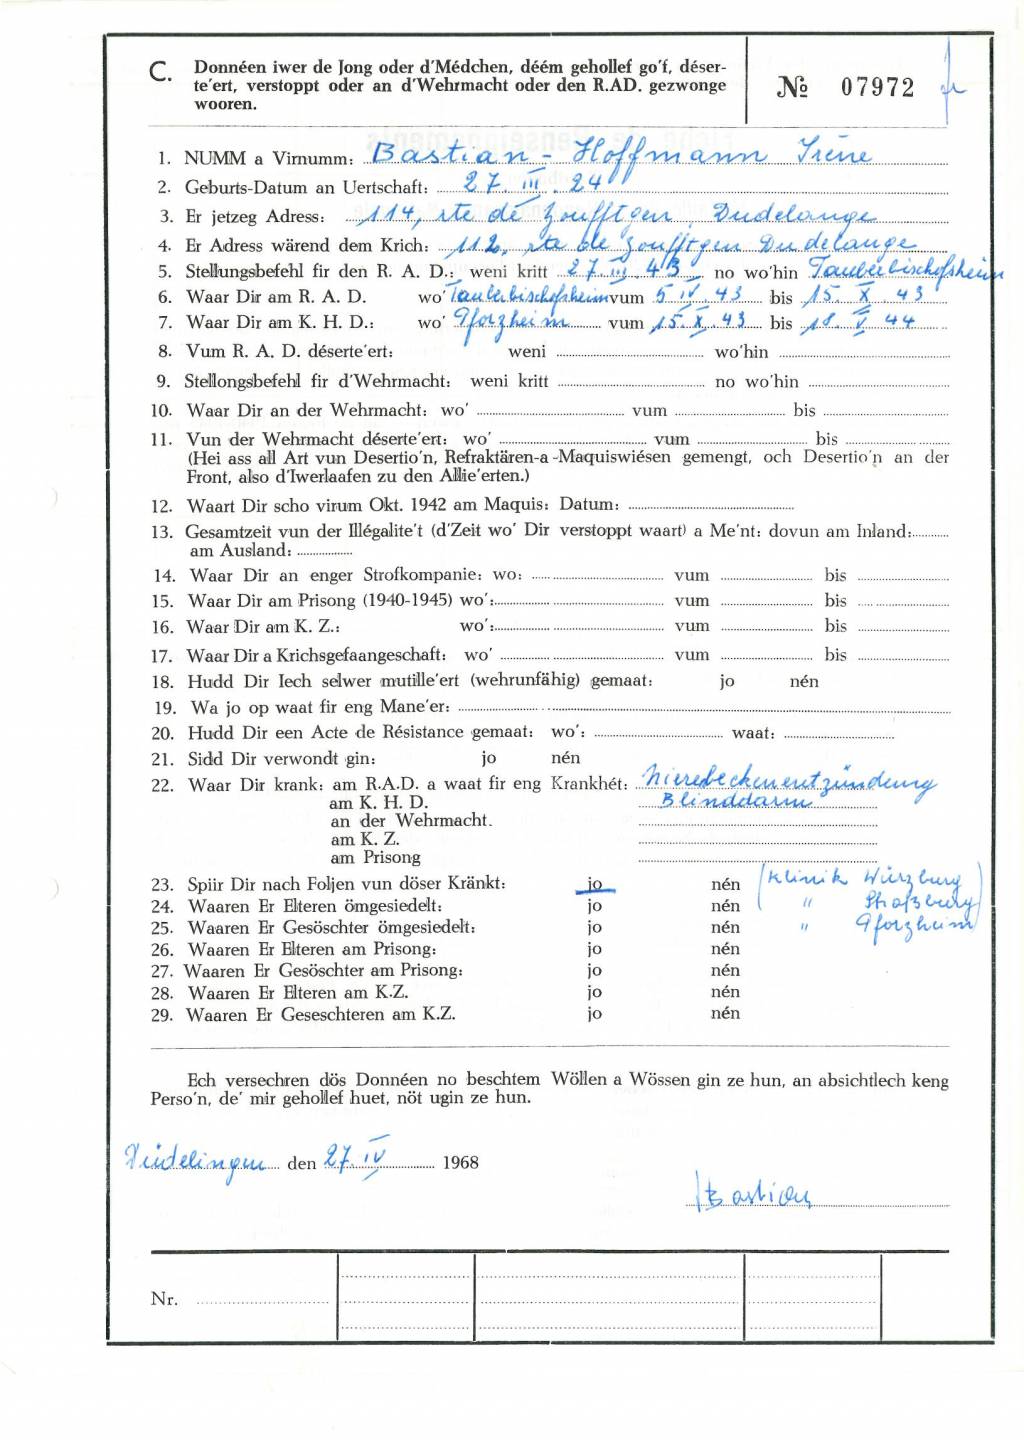 C. Donnéen iwer de Jong oder d'Médchen, déém gehollef go'f, déser-
te'ert, verstoppt oder an d'Wehrmacht oder den R.AD. gezwonge
wooren.
№ 07972
1. NUMM a Virnumm: Bastian - Hoffmann Irène
2. Geburts-Datum an Uertschaft: 27. III. 24
3. Er jetzeg Adress: 114, rte de Zoufftgen, Dudelange
4. Er Adress wärend dem Krich: 112, rte de Zoufftgen Dudelange
5. Stellungsbefehl fir den R. A. D.: weni kritt 27 III. 43 no wo'hin Tauberbischofsheim
6. Waar Dir am R. A. D. wo' Tauberbischofsheim vum 5 IV. 43 bis 15. X. 43
7. Waar Dir am K. H. D.: wo' Pforzheim vum 15. X. 43 bis 18. V. 44
8. Vum R. A. D. déserte'ert: weni wo'hin
9. Stellongsbefehl fir d'Wehrmacht: weni kritt no wo'hin
10. Waar Dir an der Wehrmacht: wo' vum bis
11. Vun der Wehrmacht déserte'ert: wo' vum bis
(Hei ass all Art vun Desertio'n, Refraktären-a-Maquiswiésen gemengt, och Desertio'n an der
Front, also d'Iwerlaafen zu den Allie'erten.)
12. Waart Dir scho virum Okt. 1942 am Maquis: Datum:
13. Gesamtzeit vun der Illégalite't (d'Zeit wo' Dir verstoppt waart) a Me'nt: dovun am Inland:
am Ausland:
14. Waar Dir an enger Strofkompanie: wo: vum bis
15. Waar Dir am Prisong (1940-1945) wo': vum bis
16. Waar Dir am K. Z.: wo': vum bis
17. Waar Dir a Krichsgefaangeschaft: wo' vum bis
18. Hudd Dir Iech selwer mutille'ert (wehrunfähig) gemaat: jo nén
19. Wa jo op waat fir eng Mane'er:
20. Hudd Dir een Acte de Résistance gemaat: wo': waat:
21. Sidd Dir verwondt gin: jo nén
22. Waar Dir krank: am R.A.D. a waat fir eng Krankhét: Nierebeckenentzündung
am K. H. D. Blinddarm
an der Wehrmacht.
am K. Z.
am Prisong
23. Spiir Dir nach Foljen vun döser Kränkt: jo nén (Klinik Würzburg)
24. Waaren Er Elteren ömgesiedelt: jo nén ( " Straßburg)
25. Waaren Er Gesöschter ömgesiedelt: jo nén " Pforzheim
26. Waaren Er Elteren am Prisong: jo nén
27. Waaren Er Gesöschter am Prisong: jo nén
28. Waaren Er Elteren am K.Z. jo nén
29. Waaren Er Geseschteren am K.Z. jo nén
Ech versechren dös Donnéen no beschtem Wöllen a Wössen gin ze hun, an absichtlech keng
Perso'n, de' mir gehollef huet, nöt ugin ze hun.
Düdelingen den 27. IV 1968
Bastian
Nr.